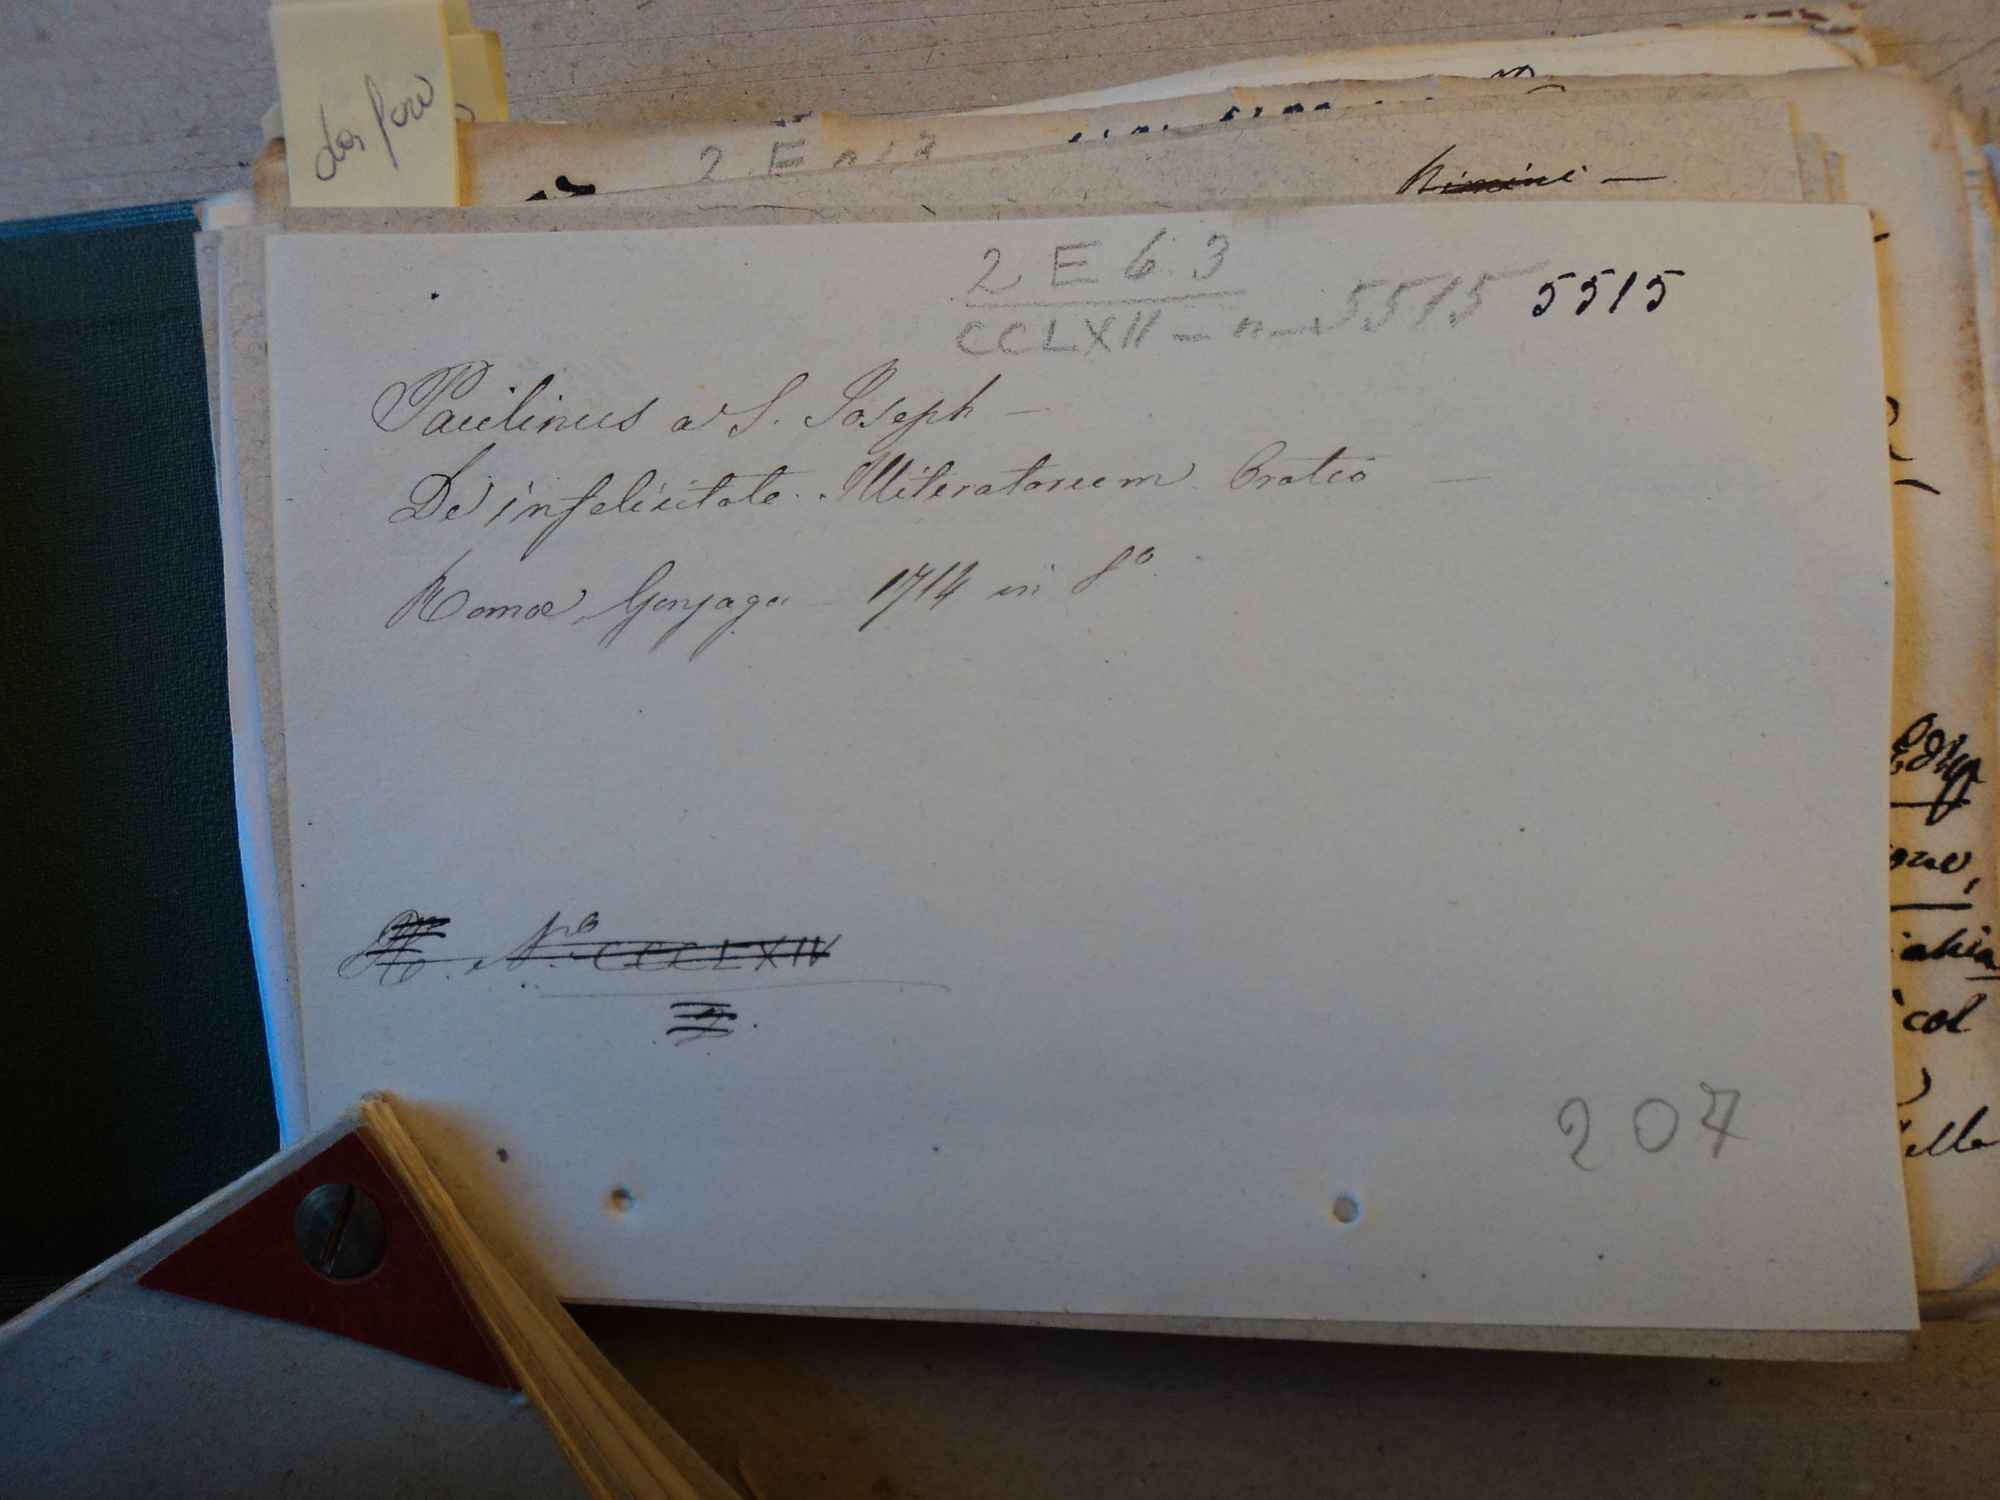 2 E
Rimini —
2 E 6.3
CCLXII - n - 5515 5515
Paulinus a S. Joseph —
De infelicitate Illiteratorum Oratio —
Romae, Gonzaga - 1714 in 8º.
Nº CCCLXIV
207
col